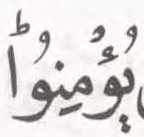 يُؤْمِنُوْا